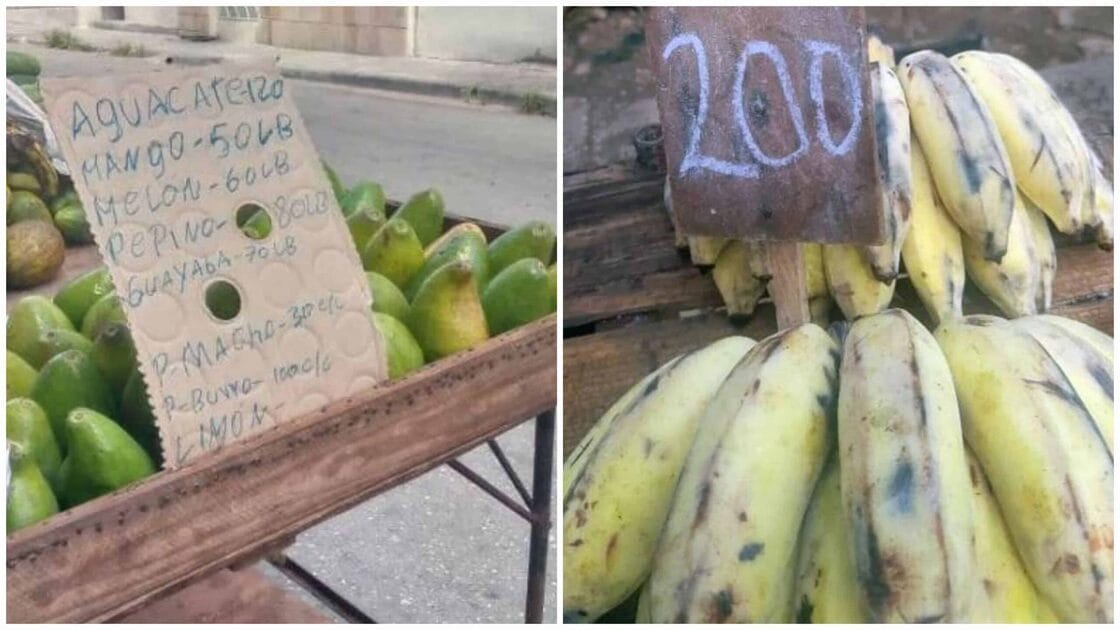 AGUACATE-120
MANGO-50LB
MELON-60LB
PEPINO-80LB
GUAYABA-70LB
P. MACHO-30c/c
P-BURRO-100c/c
LIMON-
200